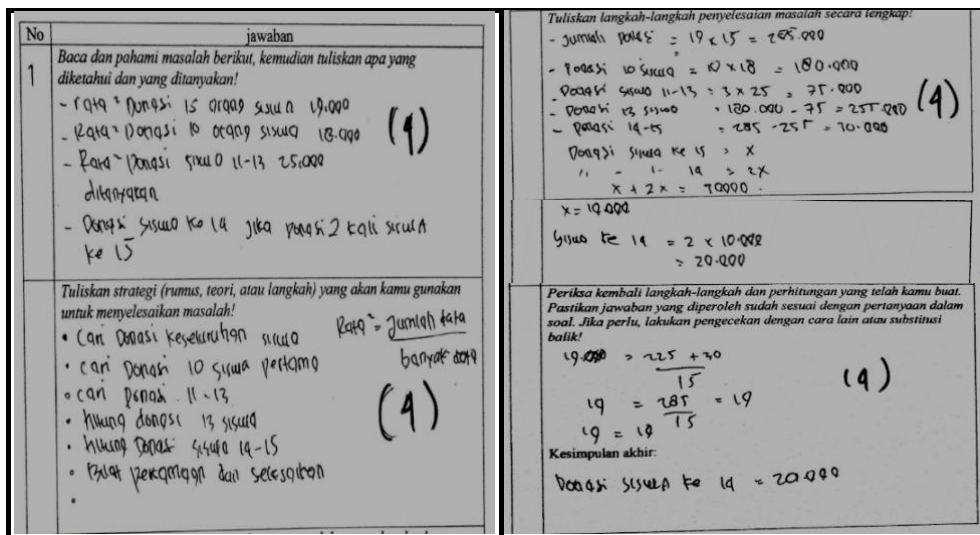 No
jawaban
1
Baca dan pahami masalah berikut, kemudian tuliskan apa yang
diketahui dan yang ditanyakan!
- rata² Donasi 15 orang siswa 19.000
- Rata² Donasi 10 orang siswa 18.000
- Rata² Donasi siswa 11-13 25.000
ditanyakan
- Donasi siswa ke 14 jika donasi 2 kali siswa
ke 15
(4)
Tuliskan strategi (rumus, teori, atau langkah) yang akan kamu gunakan
untuk menyelesaikan masalah!
• Cari Donasi keseluruhan siswa
Rata² = Jumlah data
banyak data
• cari Donasi 10 siswa pertama
• cari Donasi 11-13
• hitung donasi 13 siswa
• hitung Donasi siswa 14-15
• Buat persamaan dan selesaikan
•
(4)
Tuliskan langkah-langkah penyelesaian masalah secara lengkap!
- Jumlah Donasi = 19 x 15 = 285.000
- Donasi 10 siswa = 10 x 18 = 180.000
- Donasi siswa 11-13 = 3 x 25 = 75.000
- Donasi 13 siswa = 180.000 - 75 = 255.000
- Donasi 14-15 = 285 - 255 = 30.000
(4)
Donasi siswa ke 15 = x
" - 1- 14 = 2x
x + 2x = 30000.
x = 10.000
Siswa ke 14 = 2 x 10.000
= 20.000
Periksa kembali langkah-langkah dan perhitungan yang telah kamu buat.
Pastikan jawaban yang diperoleh sudah sesuai dengan pertanyaan dalam
soal. Jika perlu, lakukan pengecekan dengan cara lain atau substitusi
balik!
= 225 + 30
15
19 = 285 = 19
15
19 = 19
(4)
Kesimpulan akhir:
Donasi siswa ke 14 = 20.000